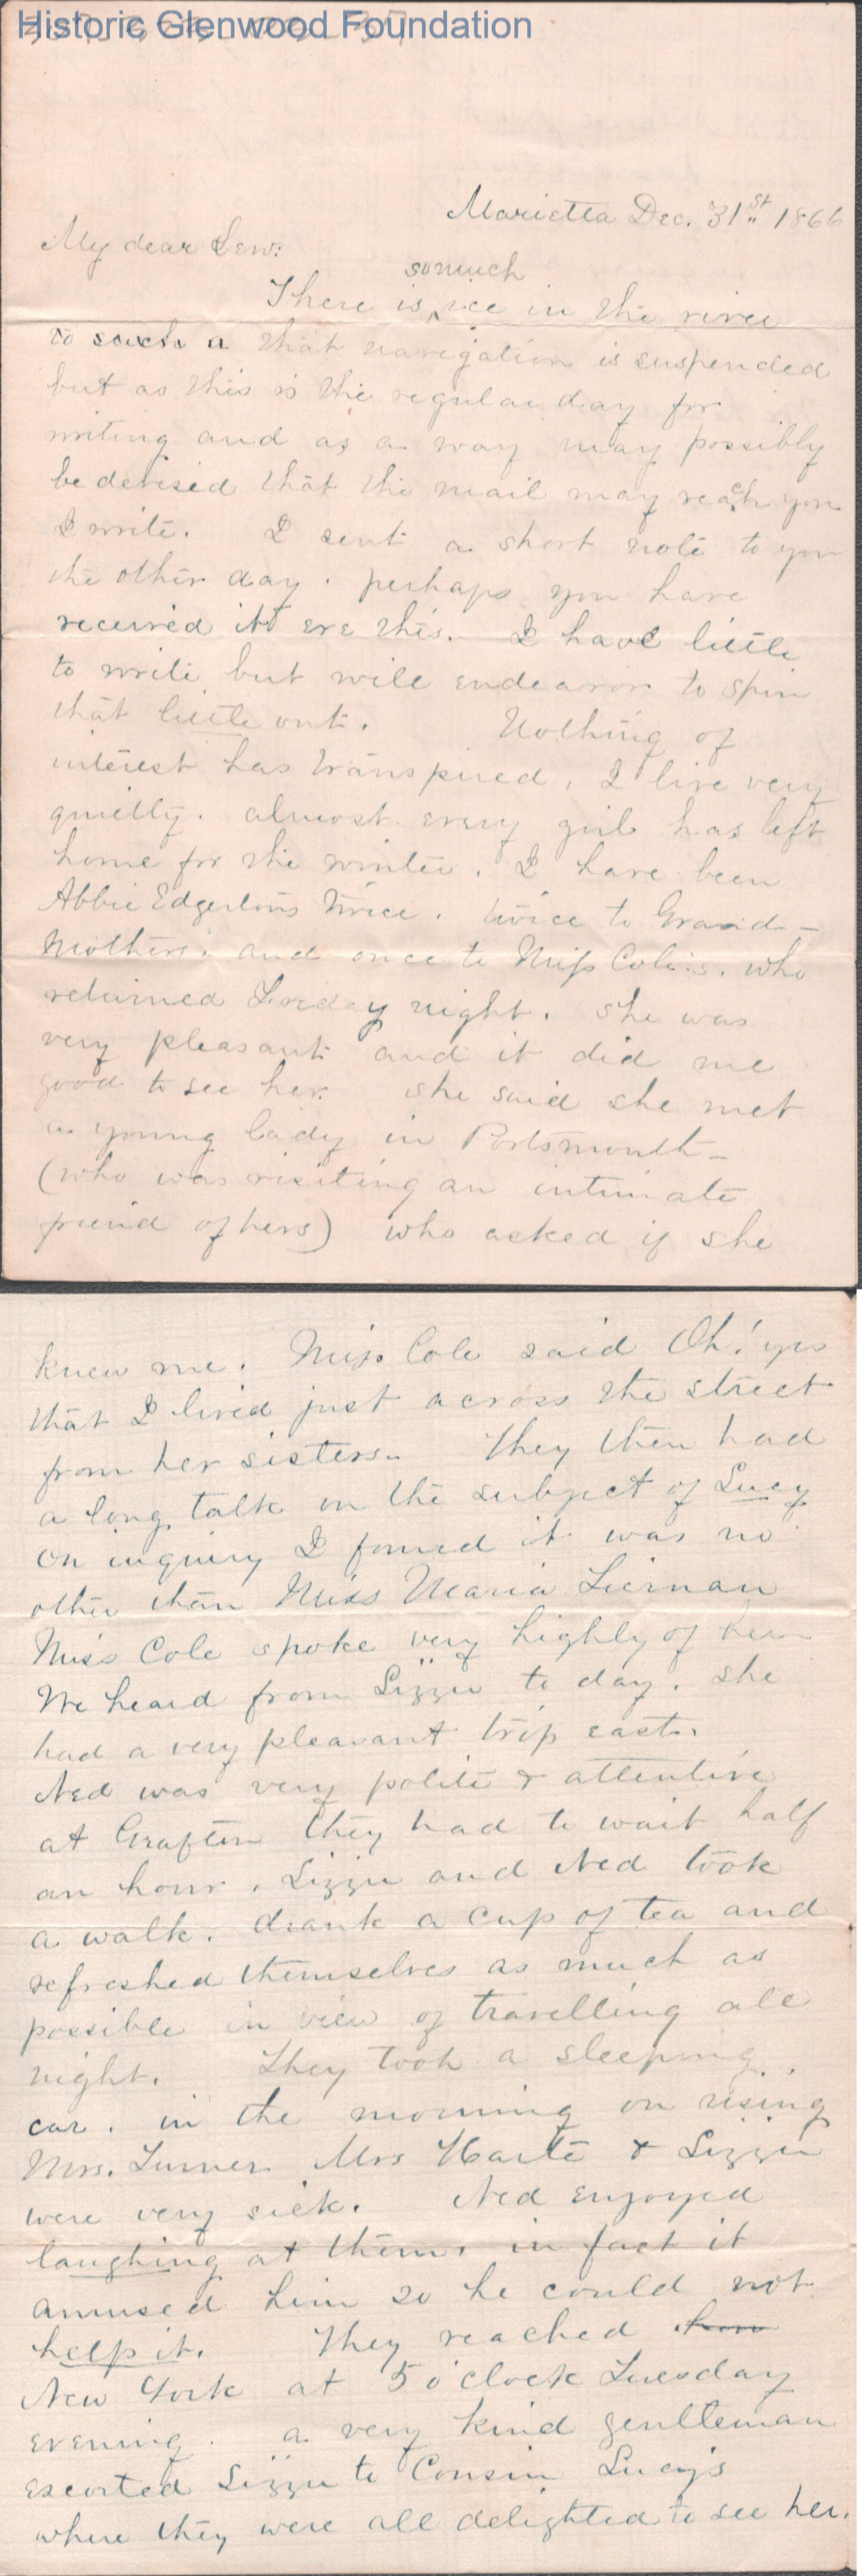 Historic Glenwood Foundation
Marietta Dec. 31st 1866
My dear Lew:
so much
There is ice in the river
to such a that navigation is suspended
but as this is the regular day for
writing and as a way may possibly
be devised that the mail may reach you
I write. I sent a short note to you
the other day. perhaps you have
received it ere this. I have little
to write but will endeavor to spin
that little out. Nothing of
interest has transpired, I live very
quietly. almost every girl has left
home for the winter. I have been
Abbie Edgerton's twice. twice to Grand-
Mothers. and once to Miss Cole's. who
returned Friday night. She was
very pleasant and it did me
good to see her. she said she met
a young lady in Portsmouth-
(who was visiting an intimate
friend of hers) who asked if she
knew me. Miss Cole said Oh! yes
that I lived just across the street
from her sisters. They then had
a long talk on the subject of Lucy
On inquiry I found it was no
other than Miss Maria
Miss Cole spoke very highly of her
We heard from Lizzie to day. She
had a very pleasant trip east.
Ned was very polite & attentive
at Grafton they had to wait half
an hour. Lizzie and Ned took
a walk. drank a cup of tea and
refreshed themselves as much as
possible in view of travelling all
night. They took a sleeping
car. in the morning on rising
Mrs. Turner Mrs Harte & Lizzie
were very sick. Ned enjoyed
laughing at them, in fact it
amused him so he could not
help it. They reached
New York at 5 o'clock Tuesday
evening. a very kind gentleman
escorted Lizzie to Cousin Lucy's
where they were all delighted to see her.